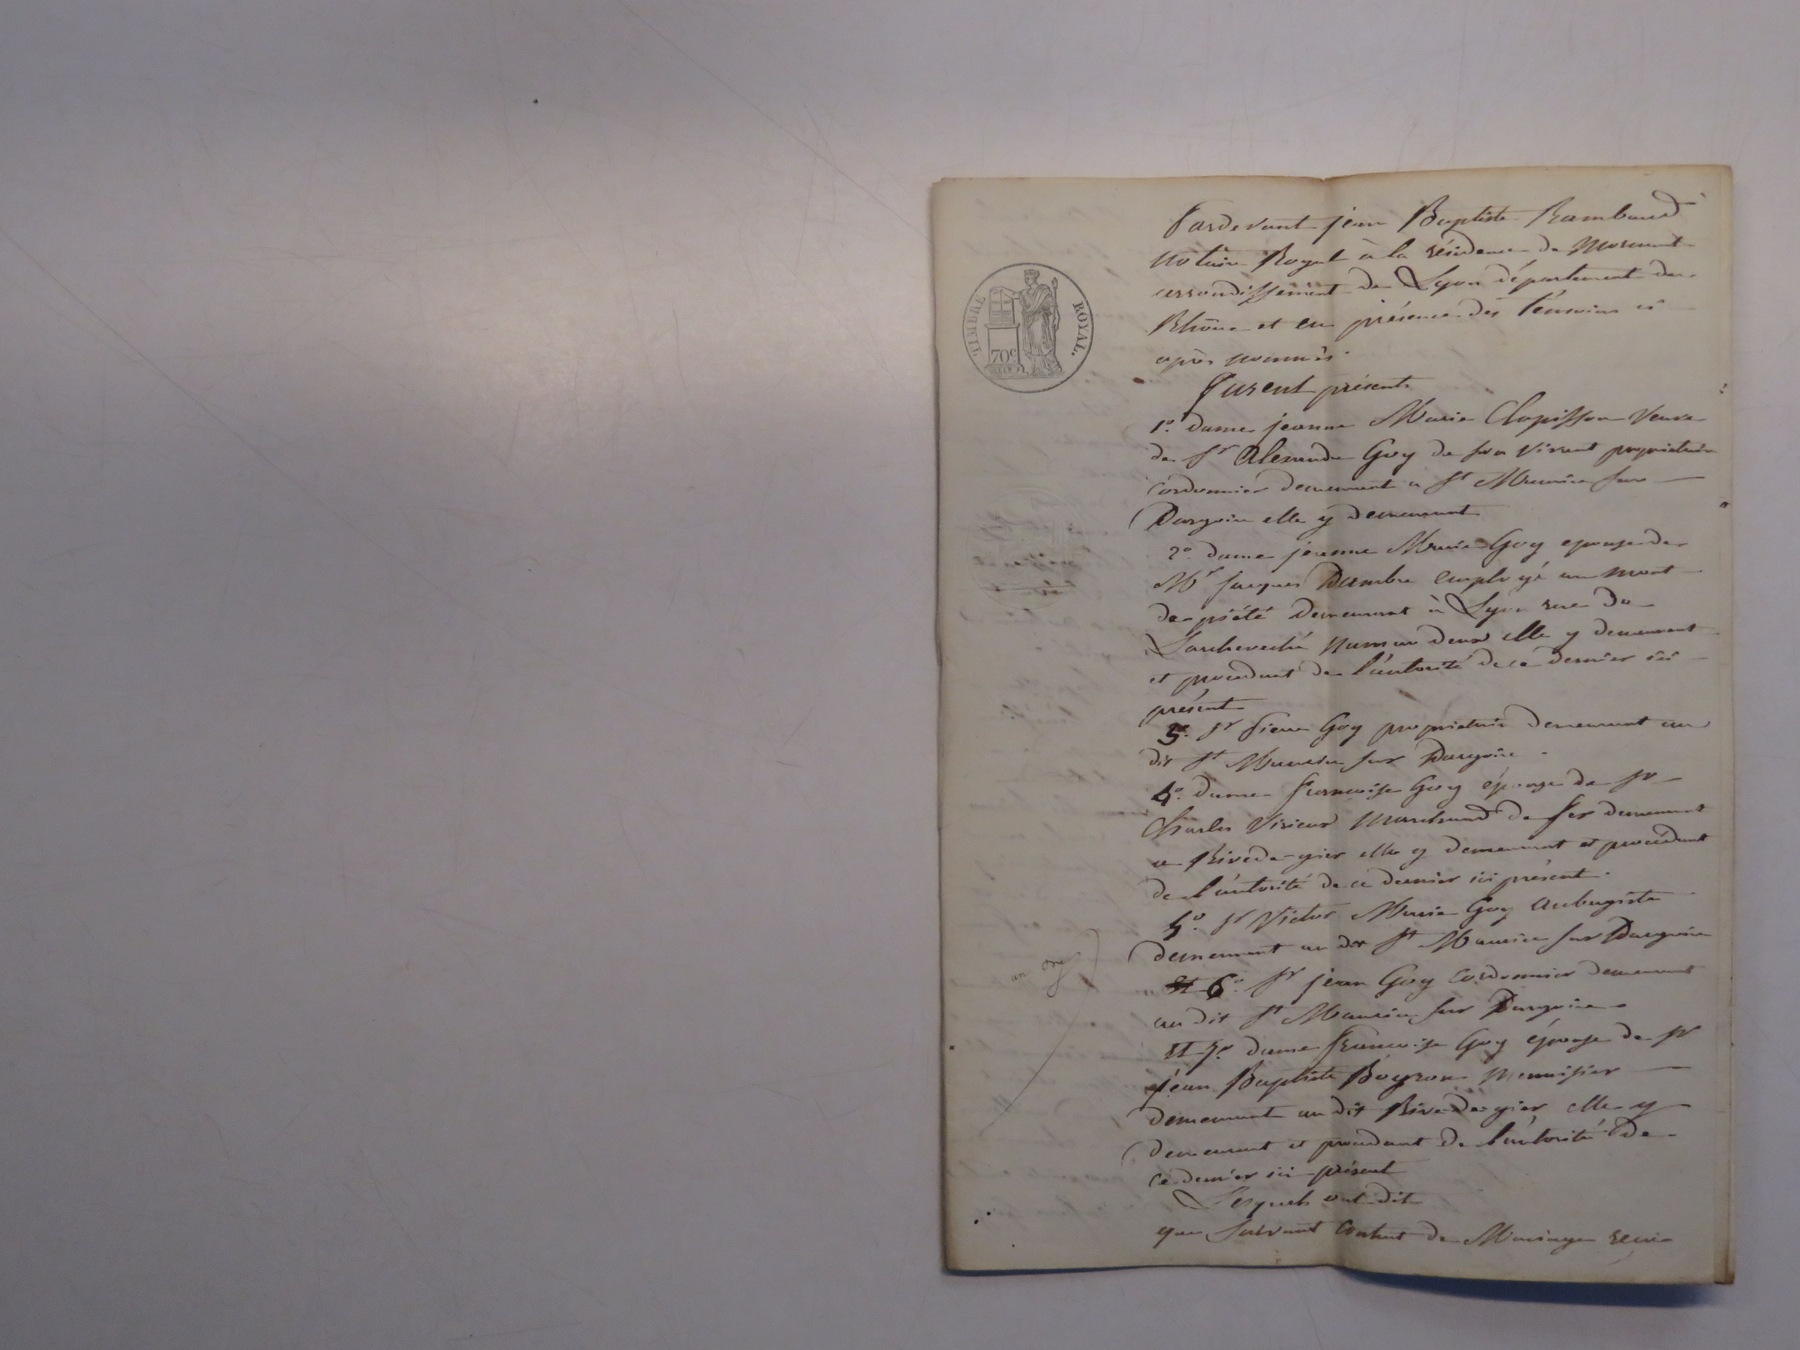 TIMBRE ROYAL.
70c
Pardevant jean Baptiste Rambaud
notaire Royal à la résidence de Mornant
arrondissement de Lyon département du
Rhône et en présence des témoins ci
après nommés.
Furent présents
1º. dame jeanne Marie Clapisson veuve
de Sr Alexandre Goy de son vivant propriétaire
cordonnier demeurant a St Maurice sur
Dargoire elle y demeurant
2º. dame jeanne Marie Goy epouse de
Mr jacques Dumbre employé au mont
de piété demeurant à Lyon rue de
Larchevêché numero deux elle y demeurant
et procedant de l'autorité de ce dernier ici
présent
3º. Sr Pierre Goy propriétaire demeurant au
dit St Maurice sur Dargoire.
4º. dame Francoise Goy épouse de Sr
Charles Virieux marchand de fer demeurant
a Rivedegier elle y demeurant et procédant
de l'autorité de ce dernier ici présent.
5º. Sr Victor Marie Goy aubergiste
demeurant au dit St Maurice sur Dargoire
et 6º. Sr jean Goy cordonnier demeurant
au dit St Maurice sur Dargoire
et 7º dame Francoise Goy épouse de Sr
jean Baptiste Boyron menuisier
demeurant au dit Rivedegier elle y
demeurant et procedant de l'autorité de
ce dernier ici présent
Lesquels ont dit
que suivant contrat de Mariage recu